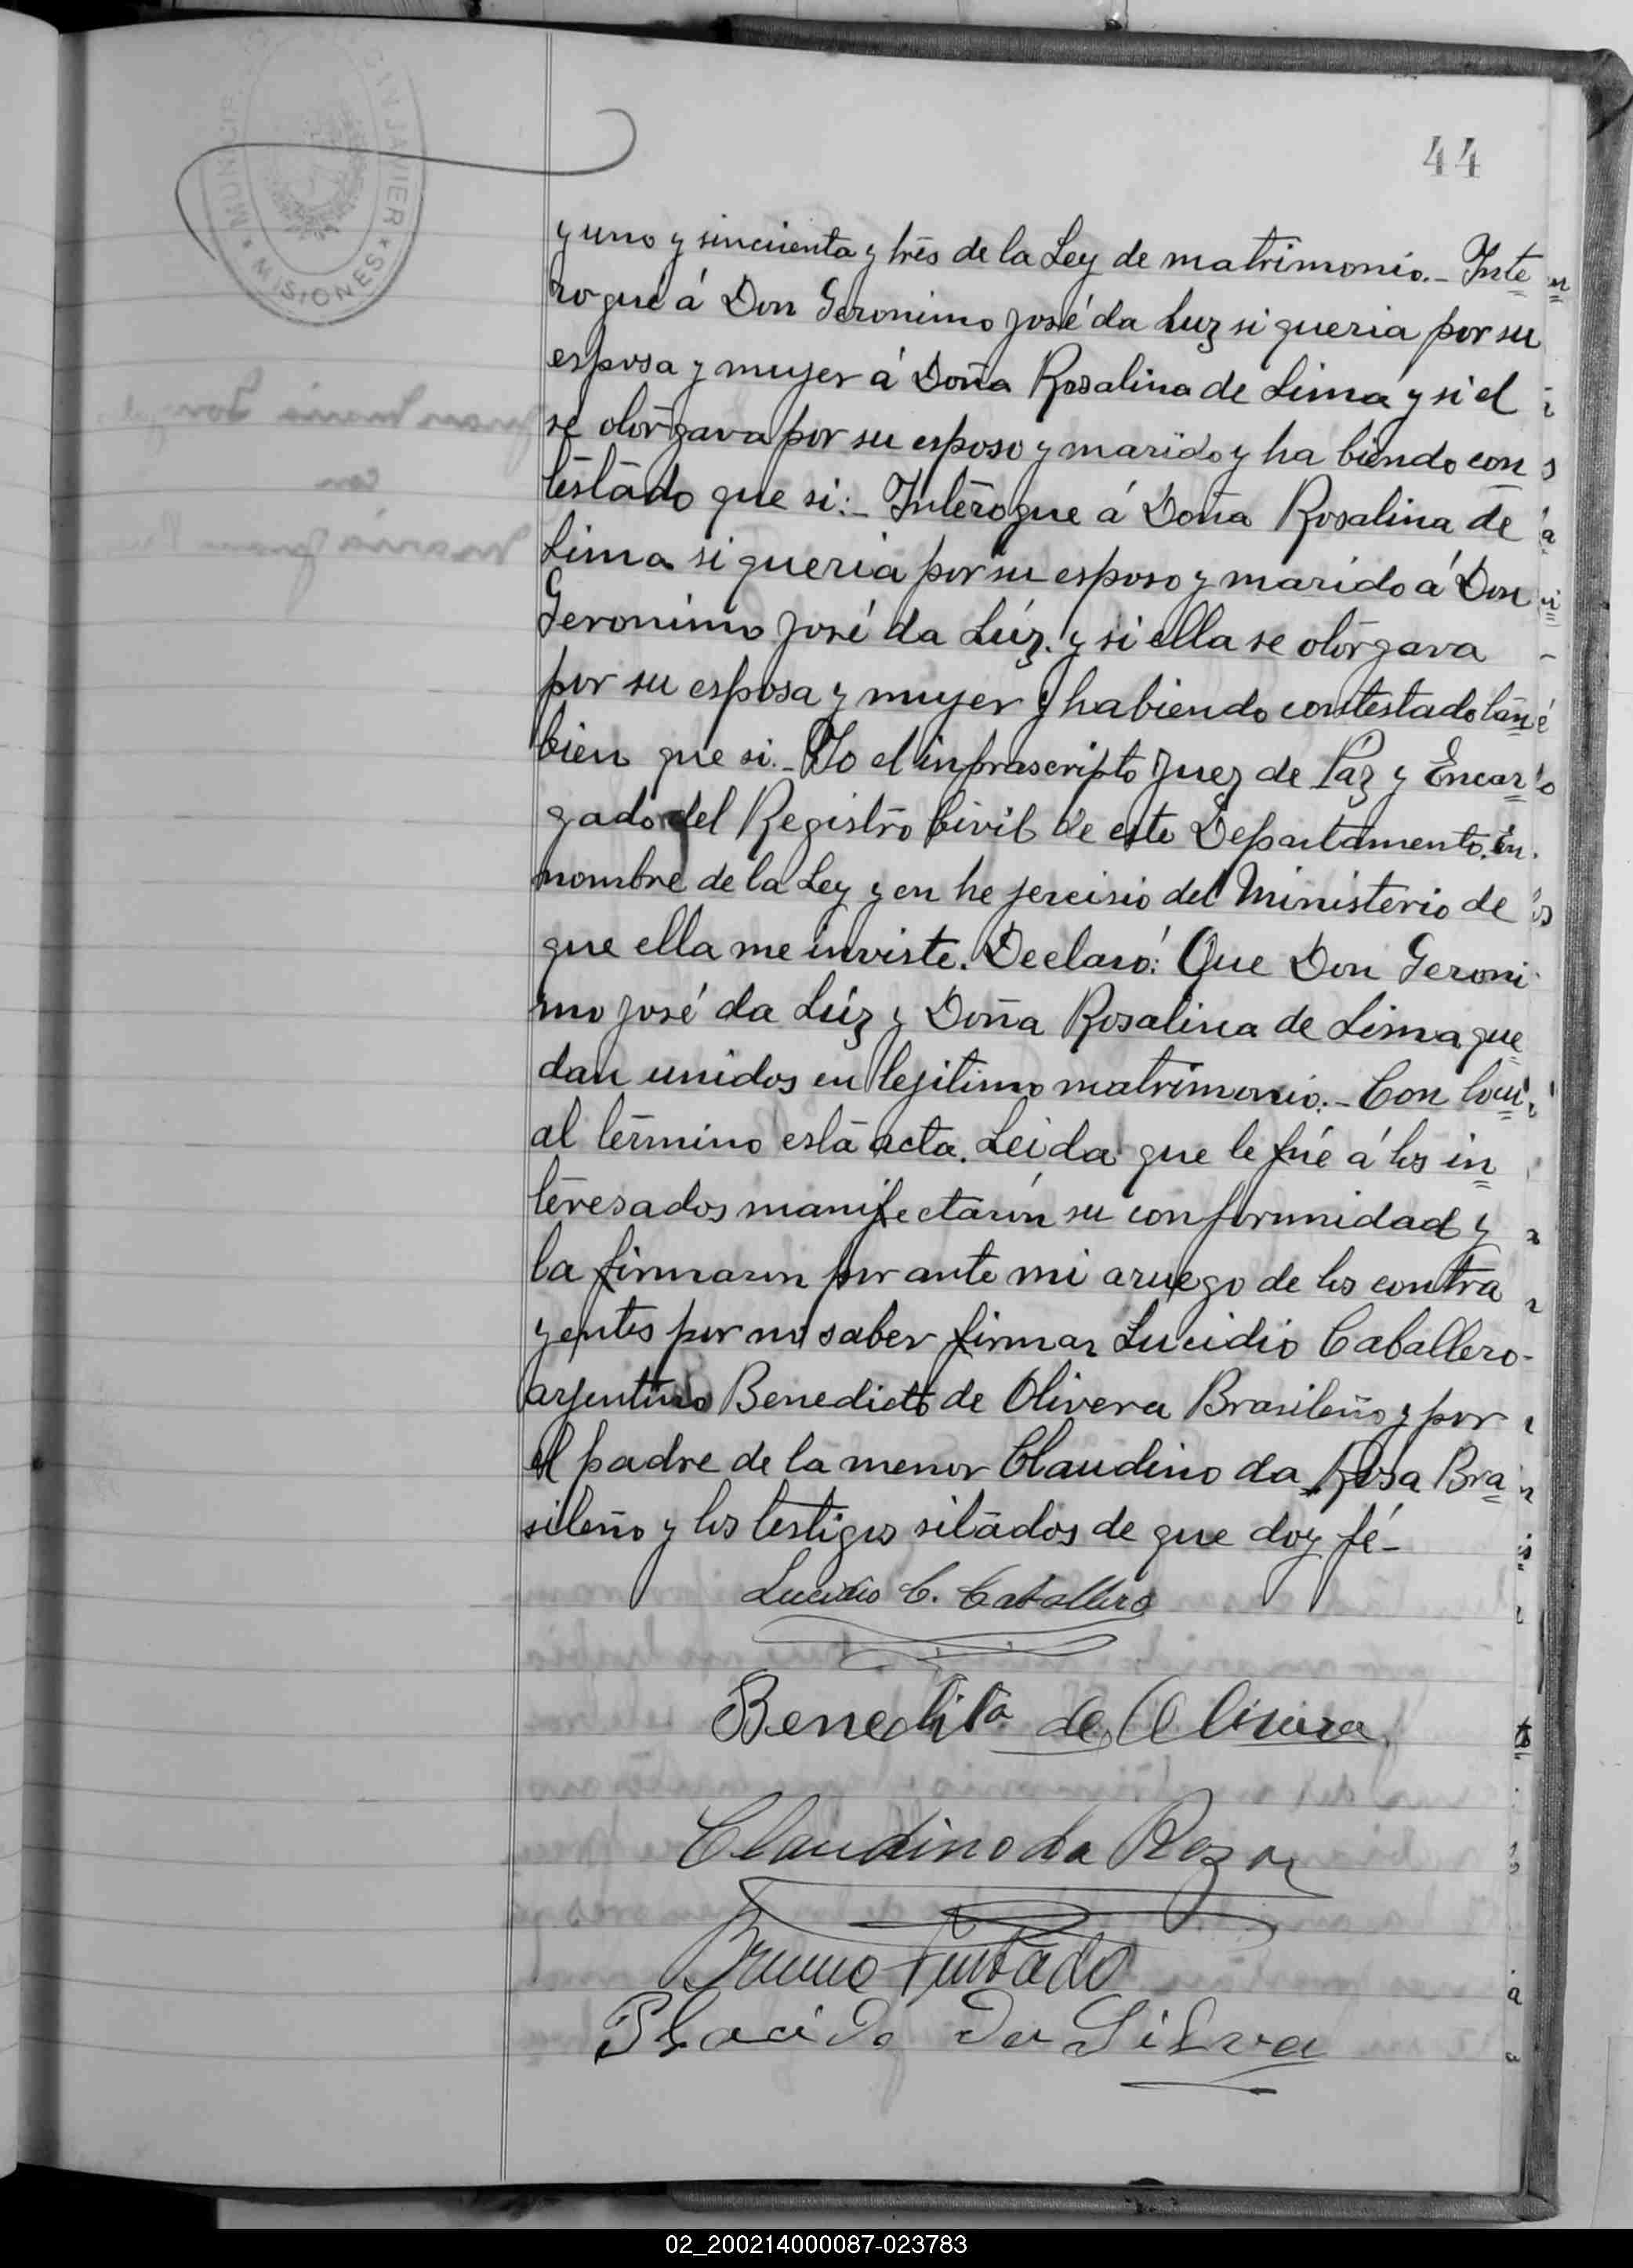 44
MUNICIP JAVIER * MISIONES *
y uno y sincuenta y três de la Ley de matrimonio.- Inte
rogué á Don Geronimo José da Luz si queria por su
esposa y mujer á Doña Rosalina de Lima y si el
se otorgava por su esposo y marido y ha biendo con
testado que si:- Interogue á Doña Rosalina de
Lima si queria por su esposo y marido á Don
Geronimo José da Lúz. y si ella se otorgava
por su esposa y mujer y habiendo contestado tan
bien que si.- Yo el infrascripto Juez de Páz y Encar
gado del Registro Civil de este Departamento. En
nombre de la Ley y en he jercisio del Ministerio de
que ella me inviste. Declaró: Que Don Geroni
mo José da Lúz y Doña Rosalina de Lima que
dan unidos en lejitimo matrimonio.- Con locu
al termino esta acta. Leida que le fué á los in
teresados manifectaron su conformidad y
la firmaron por ante mi aruego de los contra
yentes por no saber firmar Lucidio Caballero-
arjentino Benedicto de Olivera Brasileño y por
el padre de la menor Claudino da Rosa Bra
sileño y los testigos sitados de que doy fé-
Lucidio C. Caballero
Benedito de Oliveira
Claudino da Roza
Bruno Furtado
Placido Da Silva
02_200214000087-023783